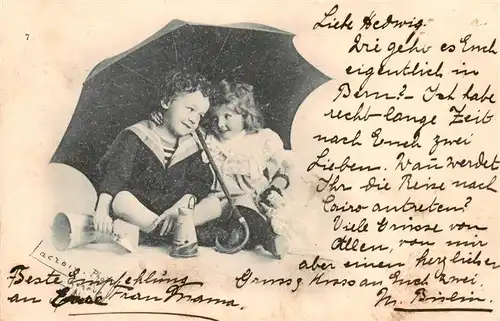 7
Liebe Hedwig.
Wie geht es Euch
eigentlich in
Bern? - Ich habe
recht lange Zeit
nach Euch zwei
Lieben. Wann werdet
Ihr die Reise nach
Cairo antreten?
Viele Grüsse von
Allen, von mir
aber einen herzlichen
Gruss & Kuss an Euch zwei.
M. Bislin.
Lacroix
Beste Empfehlung
an Frau Mama.